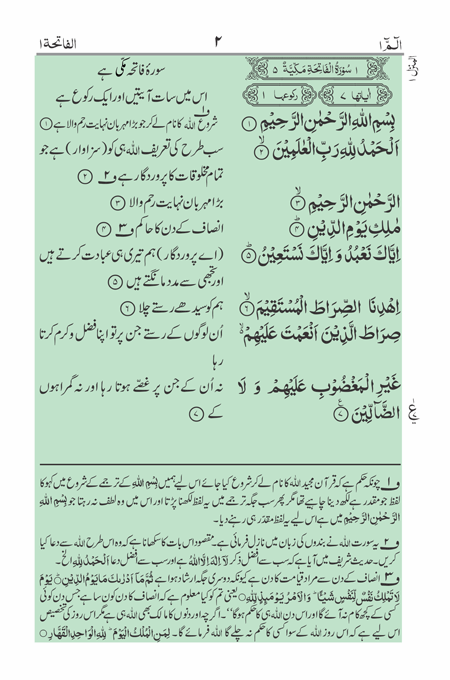 الٓمّٓ ۱
۲
الفاتحة ۱
۱ سُوْرَةُ الْفَاتِحَةِ مَكِّیَّةٌ ۵
سورۂ فاتحہ مکی ہے
اٰیاتها ۷
رکوعها ۱
اس میں سات آیتیں اور ایک رکوع ہے
بِسْمِ اللّٰهِ الرَّحْمٰنِ الرَّحِیْمِ ①
شروع اللہ کا نام لے کر جو بڑا مہربان نہایت رحم والا ہے ①
اَلْحَمْدُ لِلّٰهِ رَبِّ الْعٰلَمِیْنَ ②
سب طرح کی تعریف اللہ ہی کو (سزاوار) ہے جو
تمام مخلوقات کا پروردگار ہے ف۲ ②
الرَّحْمٰنِ الرَّحِیْمِ ③
بڑا مہربان نہایت رحم والا ③
مٰلِكِ یَوْمِ الدِّیْنِ ④
انصاف کے دن کا حاکم ف۳ ④
اِیَّاكَ نَعْبُدُ وَ اِیَّاكَ نَسْتَعِیْنُ ⑤
(اے پروردگار) ہم تیری ہی عبادت کرتے ہیں
اور تجھی سے مدد مانگتے ہیں ⑤
اِهْدِنَا الصِّرَاطَ الْمُسْتَقِیْمَ ⑥
ہم کو سیدھے رستے چلا ⑥
صِرَاطَ الَّذِیْنَ اَنْعَمْتَ عَلَیْهِمْ
اُن لوگوں کے رستے جن پر تو اپنا فضل و کرم کرتا
رہا
غَیْرِ الْمَغْضُوْبِ عَلَیْهِمْ وَ لَا
نہ اُن کے جن پر غصے ہوتا رہا اور نہ گمراہوں
الضَّآلِّیْنَ ⑦
کے ⑦
ف۱ چونکہ حکم ہے کہ قرآن مجید اللہ کا نام لے کر شروع کیا جائے اس لیے ہمیں بِسْمِ اللّٰهِ کے ترجمے کے شروع میں کہو کا
لفظ جو مقدر ہے لکھ دینا چاہیے تھا مگر پھر سب جگہ ترجمے میں یہ لفظ لکھنا پڑتا اور اس میں وہ لطف نہ رہتا جو بِسْمِ اللّٰهِ
الرَّحْمٰنِ الرَّحِیْمِ میں ہے اس لیے یہ لفظ مقدر ہی رہنے دیا۔
ف۲ یہ سورت اللہ نے بندوں کی زبان میں نازل فرمائی ہے۔ مقصود اس بات کا سکھانا ہے کہ وہ اس طرح اللہ سے دعا کیا
کریں۔ حدیث شریف میں آیا ہے کہ سب سے افضل ذکر لَآ اِلٰهَ اِلَّا اللّٰهُ ہے اور سب سے افضل دعا اَلْحَمْدُ لِلّٰهِ الخ۔
ف۳ انصاف کے دن سے مراد قیامت کا دن ہے کیونکہ دوسری جگہ ارشاد ہوا ہے ثُمَّ مَآ اَدْرٰىكَ مَا یَوْمُ الدِّیْنِ ۞ یَوْمَ
لَا تَمْلِكُ نَفْسٌ لِّنَفْسٍ شَیْئًا وَ الْاَمْرُ یَوْمَىِٕذٍ لِّلّٰهِ یعنی تم کو کیا معلوم ہے کہ انصاف کا دن کون سا ہے جس دن کوئی
کسی کے کچھ کام نہ آئے گا اور اس دن اللہ ہی کا حکم ہوگا۔ اگرچہ اور دنوں کا مالک بھی اللہ ہی ہے مگر اس روز کی تخصیص
اس لیے ہے کہ اس روز اللہ کے سوا کسی کا حکم نہ چلے گا اللہ فرمائے گا۔ لِمَنِ الْمُلْكُ الْیَوْمَ لِلّٰهِ الْوَاحِدِ الْقَهَّارِ